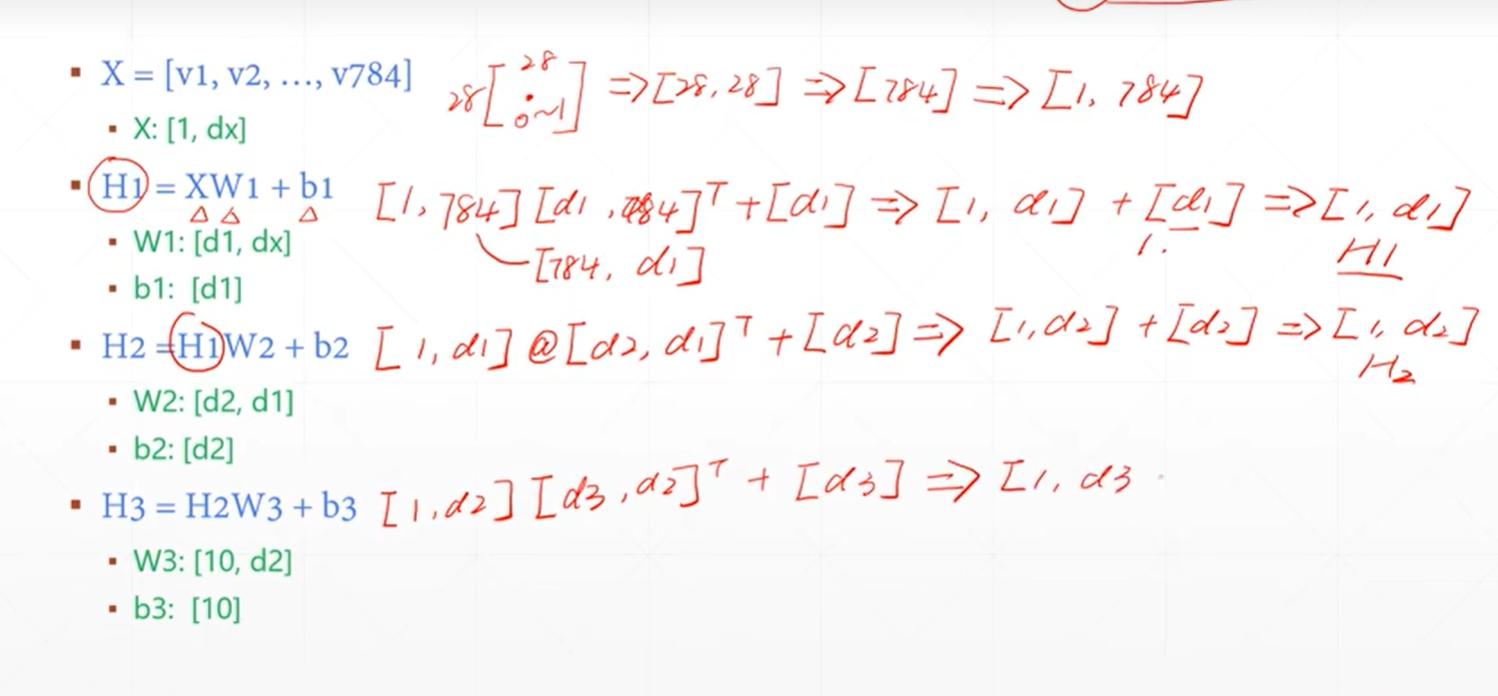 X = [v1, v2, ..., v784] 28[28 · 0~1] => [28, 28] => [784] => [1, 784]
X: [1, dx]
H1 = XW1 + b1 [1, 784] [d1, 784]ᵀ + [d1] => [1, d1] + [d1] => [1, d1]
W1: [d1, dx] [784, d1] 1. H1
b1: [d1]
H2 = H1W2 + b2 [1, d1] @ [d2, d1]ᵀ + [d2] => [1, d2] + [d2] => [1, d2]
H2
W2: [d2, d1]
b2: [d2]
H3 = H2W3 + b3 [1, d2] [d3, d2]ᵀ + [d3] => [1, d3
W3: [10, d2]
b3: [10]